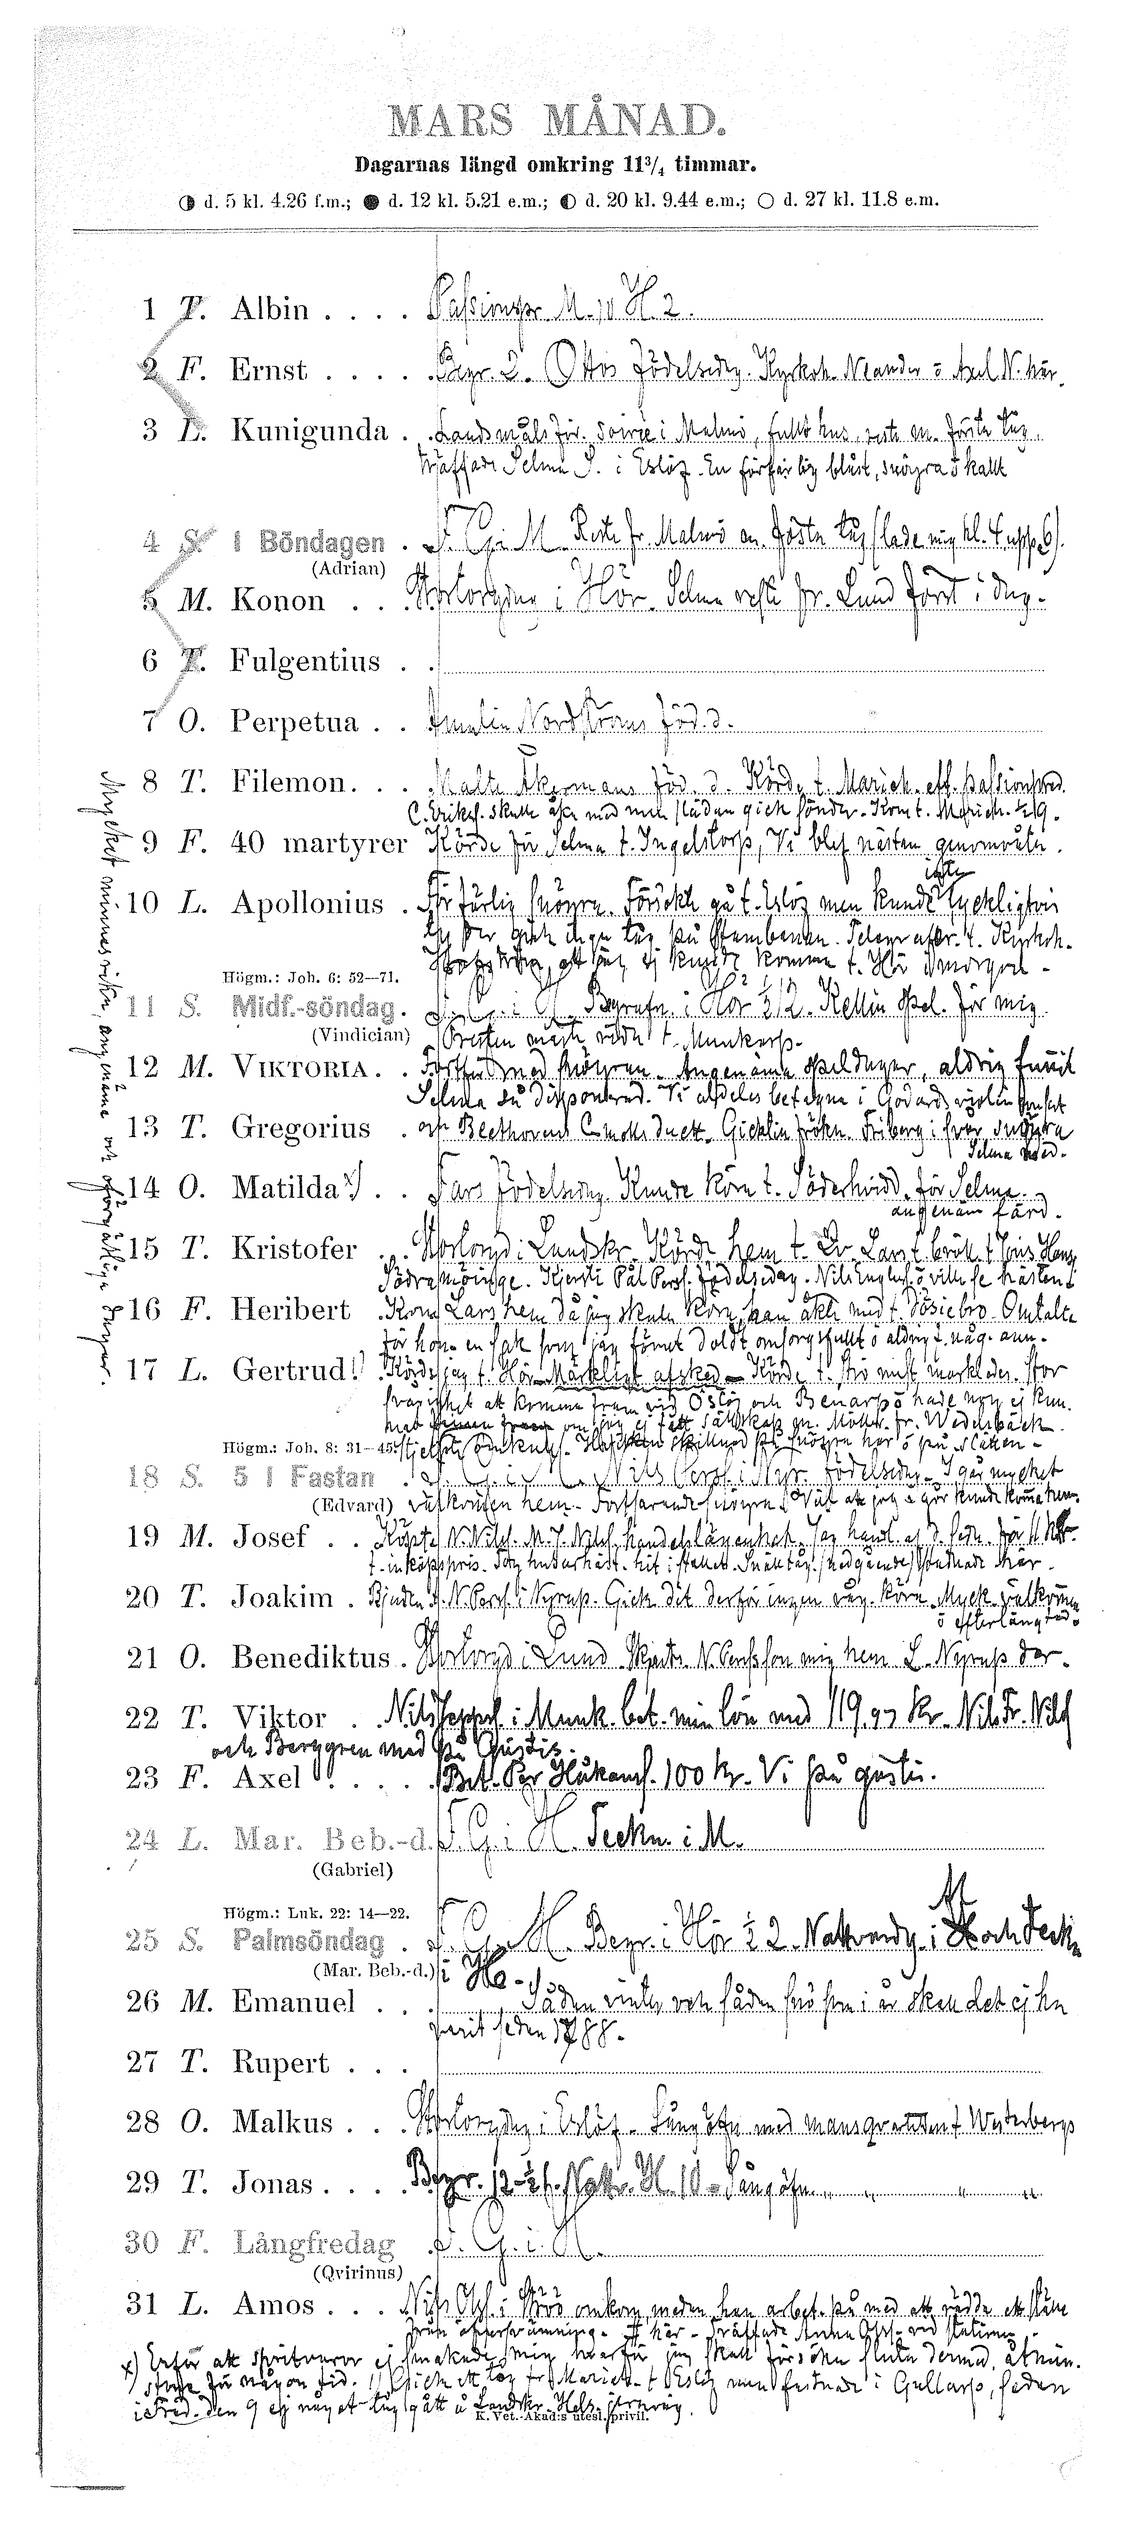 MARS MÅNAD.
Dagarnas längd omkring 11¾ timmar.
◑ d. 5 kl. 4.26 f.m.; ● d. 12 kl. 5.21 e.m.; ◐ d. 20 kl. 9.44 e.m.; ○ d. 27 kl. 11.8 e.m.
1 T. Albin . . . . Passionspr. M. 10 H. 2.
2 F. Ernst . . . . . Begr. 2. Ottos födelsedag. Kyrkoh. Neander o Axel N. här.
3 L. Kunigunda . . Landsmåls för. soiré i Malmö, fullt hus, reste m. första tåg.
träffade Selma S. i Eslöf. En förfärlig blåst, snöyra o kallt
4 S. 1 Böndagen . F. G. i M. Reste fr. Malmö m. första tåg (lade mig kl. 4, upp 6).
(Adrian)
5 M. Konon . . . Stortorgdag i Hör. Selma reste fr. Lund först i dag.
6 T. Fulgentius . .
7 O. Perpetua . . Amalia Nordströms föd. d.
8 T. Filemon. . . . Malte Åkermans föd. d. Körde t. Marieh. eft. passionspred.
C. Erikss. skulle åka med men släden gick sönder. Kom t. Marieh. ½ 9.
9 F. 40 martyrer Körde för Selma t. Ingelstorp, Vi blef nästan genomvåta.
inte
10 L. Apollonius . Förfärlig snöyra. Försökte gå t. Eslöf men kunde lyckligtvis
ty der gick inga tåg på stambanan. Telegrafer. t. Kyrkoh.
att jag ej kunde komma t. Hör i morgon.
Högm.: Joh. 6: 52—71.
11 S. Midf.-söndag. F. G. i H. Begrafn. i Hör ½ 2. Kellin spel. för mig.
(Vindician) Presten måste rida t. Munkarp.
12 M. VIKTORIA . . Fortfar med snöyran. Angenäma speldagar, aldrig funnit
Selma så disponerad. Vi alldeles betagna i Godards violinkonsert
13 T. Gregorius . och Beethovens Cmolls duett. Gick fröken Friberg i svår snöyra
Selma med.
14 O. Matilda x) . . Fars födelsedag. Kunde köra t. Söderhvidd. för Selma.
angenäm färd.
15 T. Kristofer . . Stortorgd i Landskr. Körde hem t. Lars t. bröll. t Jöns Hans
Södra möinge. Kjersti Pål Perss. födelsedag. Nils o ville se hästen
16 F. Heribert . Kom Lars hem då jag skulle köra, han åkte med t. Dösjebro. Omtalte
för hon. en sak som jag förut doldt omsorgsfullt o aldrig f. någ. ann.
17 L. Gertrud! . Körde jag t. Hör. Märkligt afsked — Körde t. marknader. Stor
svårighet att komma fram vid Östöf och Benarp o hade nog ej kun.
nat om jag ej fått sällskap m. Möller fr. Wedelsbäck.
Högm.: Joh. 8: 31—45. skillnad på snöyra här o på slätten.
18 S. 5 i Fastan . F. G. i M. Nils Perss. i Nyr. födelsedag. I går mycket
(Edvard) välkommen hem. Fortfarande snöyra. Väl att jag i går kunde komma hem.
19 M. Josef . . Köpte N. Nilss. M. J. Nilss. handelslägenhet.
t. inköpspris. häst. hit i stallet. Snälltåg. (nedgående) stannade här.
20 T. Joakim . Bjuden t. N. Perss. i Nyrup. Gick dit derför ingen väg. köra. Myck. välkommen
o efterlängtad.
21 O. Benediktus . Stortorgd i Lund. Skjuts. N. Persson mig hem L. Nyrup der.
22 T. Viktor . . Nils Jeppss. i Munk. bet. min lön med 119.97 Kr. Nils Fr. Nilss
och Berggren med på Gustis.
23 F. Axel . . . . . Bet. Per Håkans. 100 kr. Vi på gustis.
24 L. Mar. Beb.-d. F. G. i H. Teckn. i M.
(Gabriel)
Högm.: Luk. 22: 14—22. M
25 S. Palmsöndag . F. G. M. Begr. i Hör ½ 2. Nattvardg. i H och Teckn
(Mar. Beb.-d.) i Hö.
26 M. Emanuel . . . Sådan vinter och sådan snö som i år skall det ej ha
varit sedan 1788.
27 T. Rupert . . .
28 O. Malkus . . . Stortorgdag i Eslöf. Sångöfn med mansqvartetten t Westerbergs
29 T. Jonas . . . . Begr. 12-½1. Nattv. H. 10. Sångöfn. „ „ „ „
30 F. Långfredag . F. G. i. H.
(Qvirinus)
31 L. Amos . . . . Nils Ols. i Stöd omkom, medan han arbet. på med att rädda ett ställe
öfversvämning. här. Träffade Anna Olss. vid stationen.
x) Erfor att spritvaror ej smakade mig hvarför jag skall försöka sluta dermed, åtmin.
stone för någon tid. !) Gick ett tåg fr Marieh. t Eslöf men fastnade i Gullarp, sedan
i Fred. den 9 ej något tåg gått å Landskr. Hels. jernväg.
K. Vet.-Akad:s utesl. privil.
Mycket minnesrika, angenäma och oförgätliga dagar.